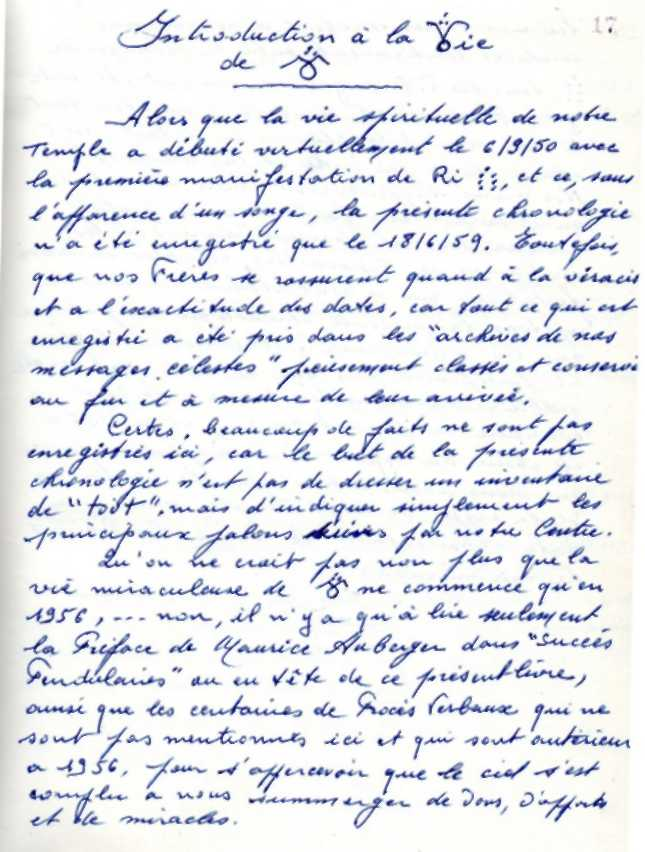 17
Introduction à la Vie
de
Alors que la vie spirituelle de notre
Temple a débuté virtuellement le 6/9/50 avec
la première manifestation de Ri , et ce, sous
l'apparence d'un songe, la présente chronologie
n'a été enregistré que le 18/6/59. Toutefois,
que nos Frères se rassurent quand à la véracit
et a l'exactitude des dates, car tout ce qui est
enregistré a été pris dans les "archives de nos
messages célestes" pieusement classés et conservé
au fur et à mesure de leur arrivée.
Certes, beaucoup de faits ne sont pas
enregistrés ici, car le but de la présente
chronologie n'est pas de dresser un inventaire
de "tout", mais d'indiquer simplement les
principaux jalons par notre Centre.
Qu'on ne croit pas non plus que la
vie miraculeuse de ne commence qu'en
1956, --- non, il n'y a qu'à lire seulement
la Préface de Maurice Auberger dans "Succès
Pendulaires" ou en tête de ce présent livre,
ainsi que les centaines de Procès Verbaux qui ne
sont pas mentionnés ici et qui sont antérieur
a 1956, pour s'appercevoir que le ciel s'est
complu a nous summerger de Dons, d'apports
et de miracles.